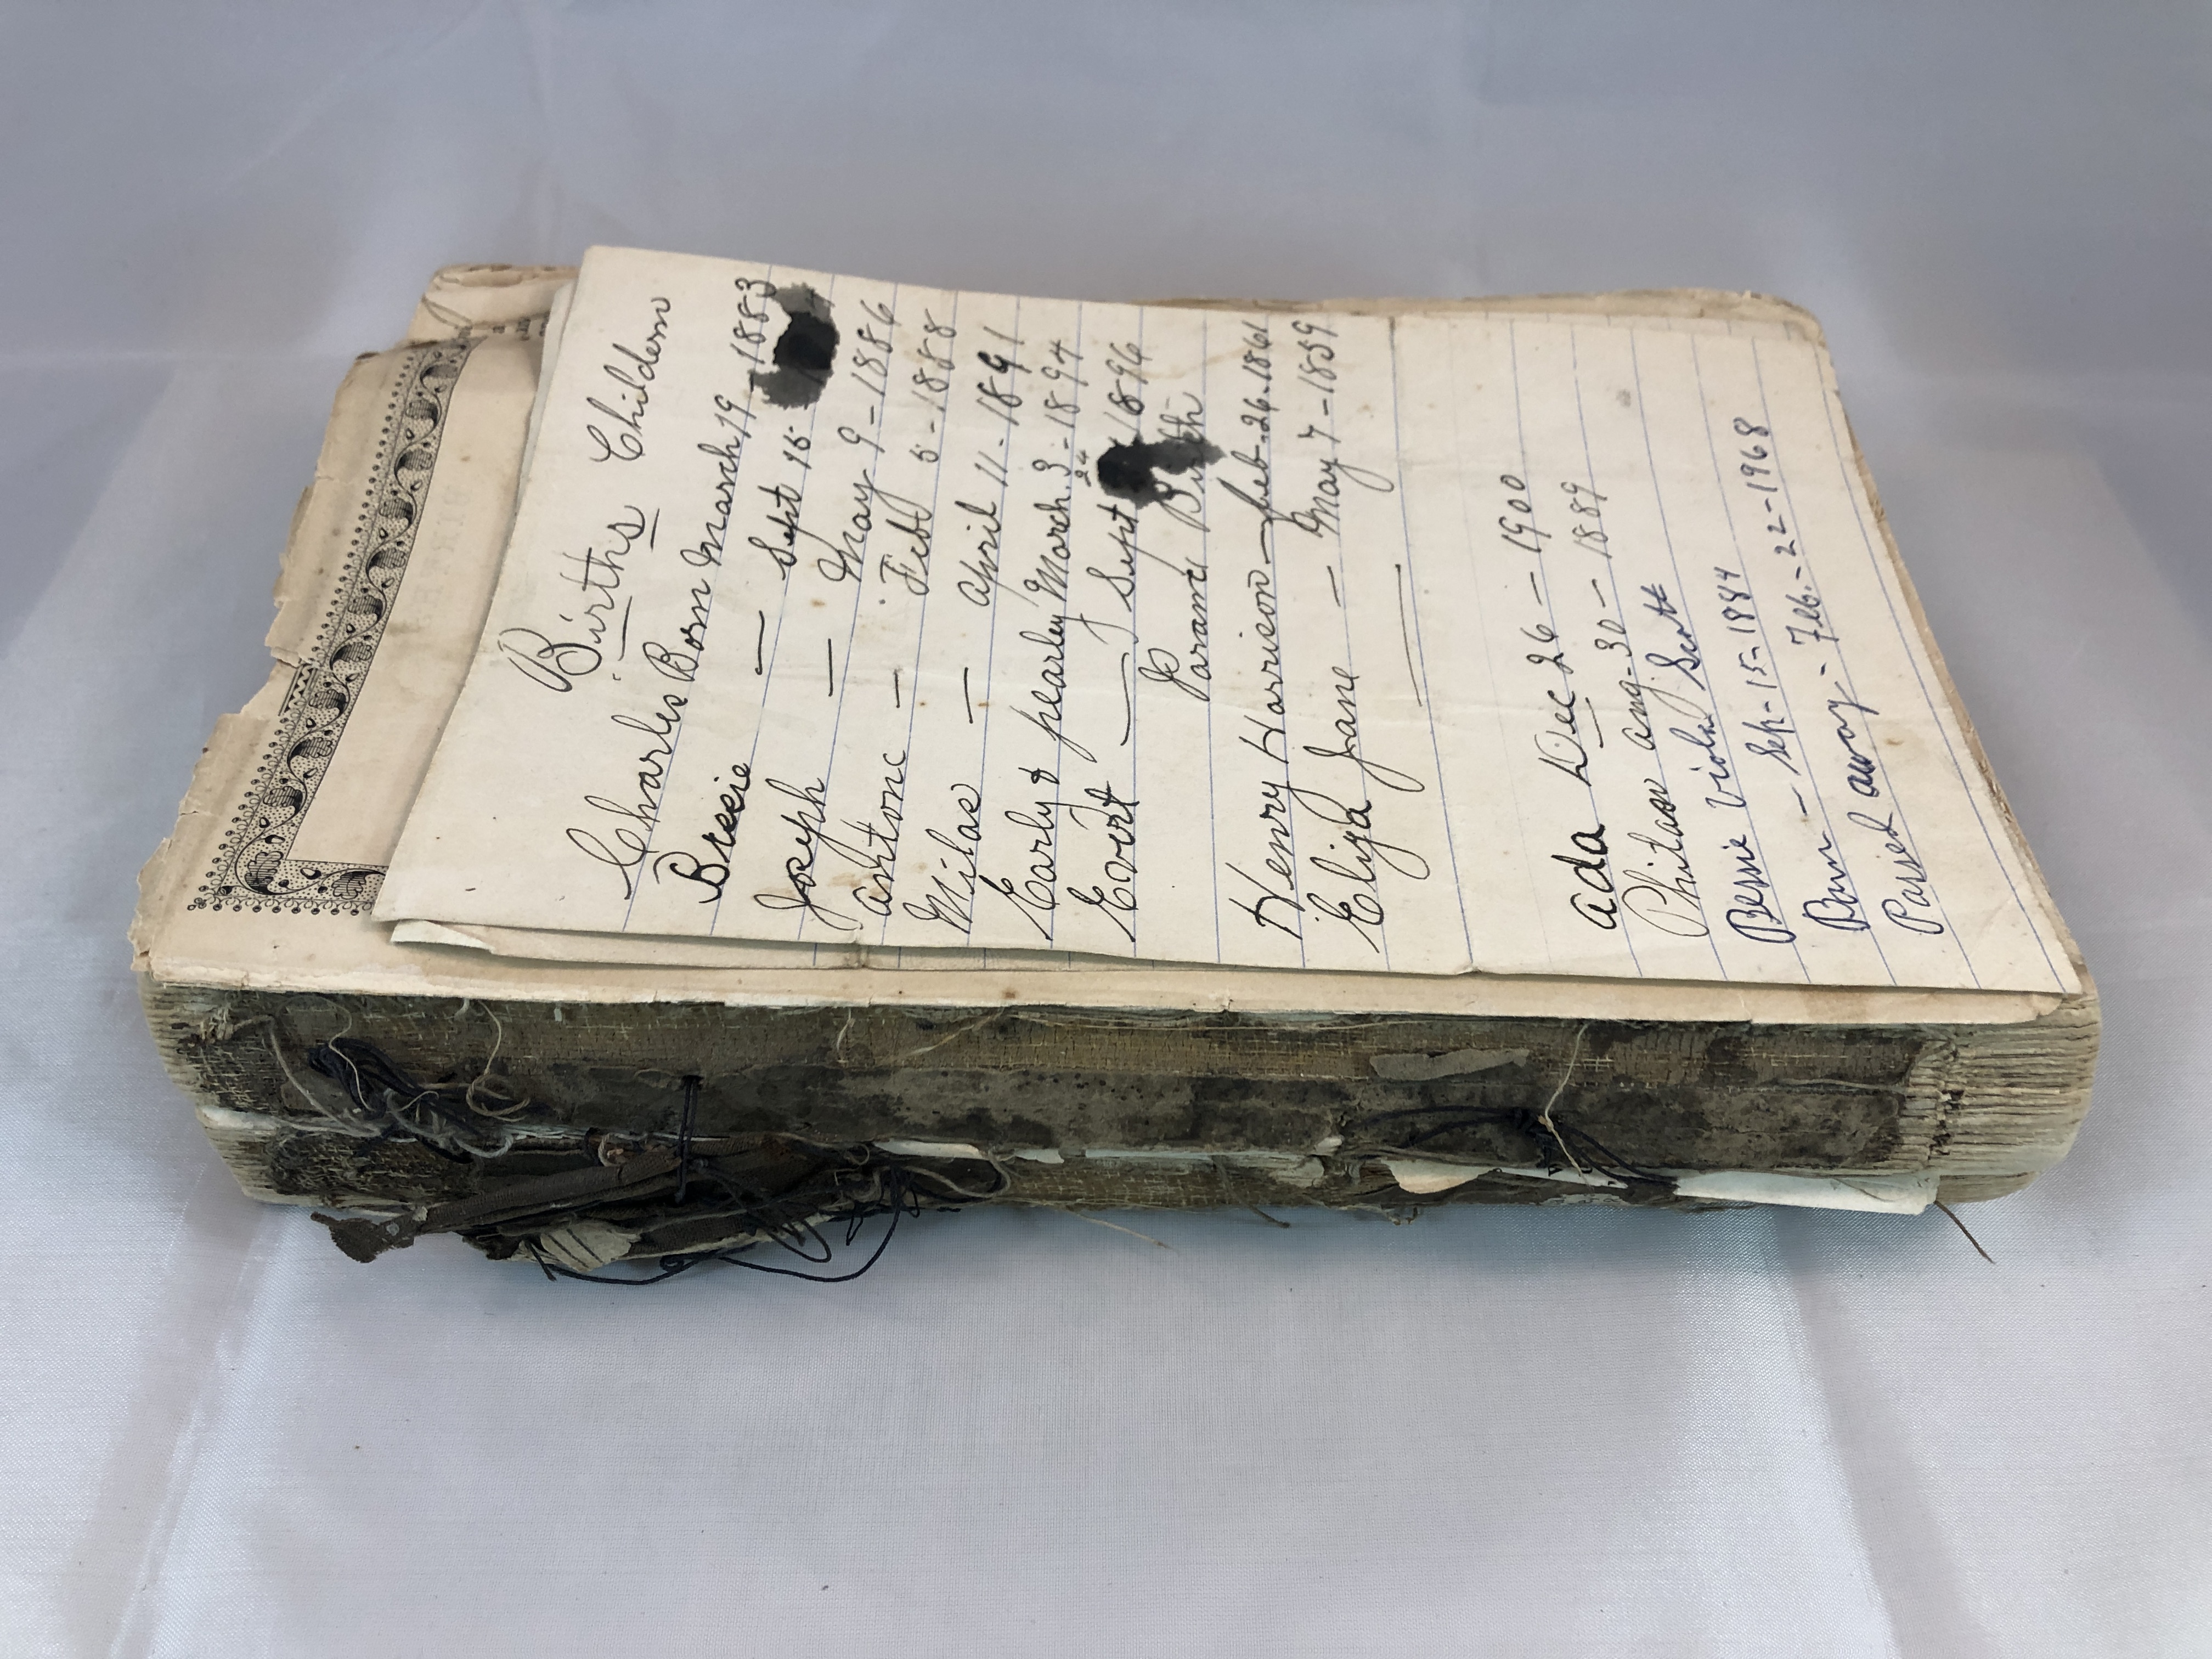 Births Childern
Charles Born March 19 - 1883
Bessie — Sept 15
Joseph — May 9 - 1886
— Feb 5 - 1888
Milas — April 11 - 1891
Early & pearley March 3 - 1894
Evert — Sept 24 1896
Parand Birth
Henry Harrison — feb - 26 - 1861
Eliza Jane — May 7 - 1859
ada Dec 26 - 1900
aug - 30 - 1889
Bessie Viola Scott
Born - Sep - 15 - 1884
Passed away - Feb. - 22 - 1968